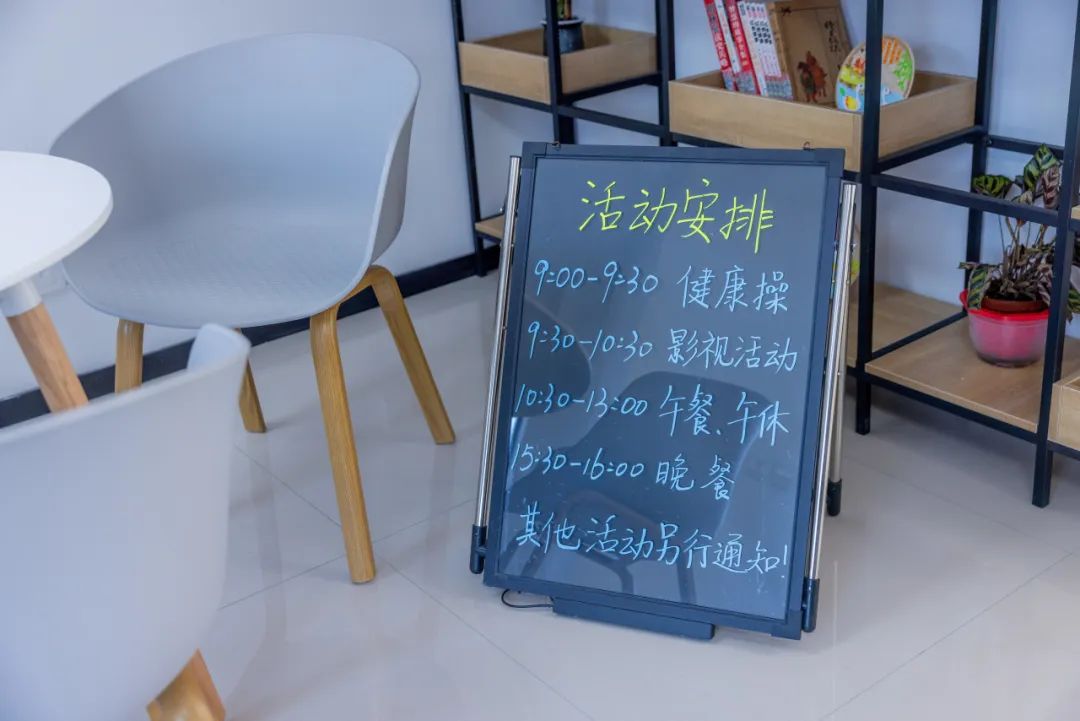 活动安排
9:00-9:30 健康操
9:30-10:30 影视活动
10:30-13:00 午餐、午休
15:30-16:00 晚餐
其他活动另行通知!